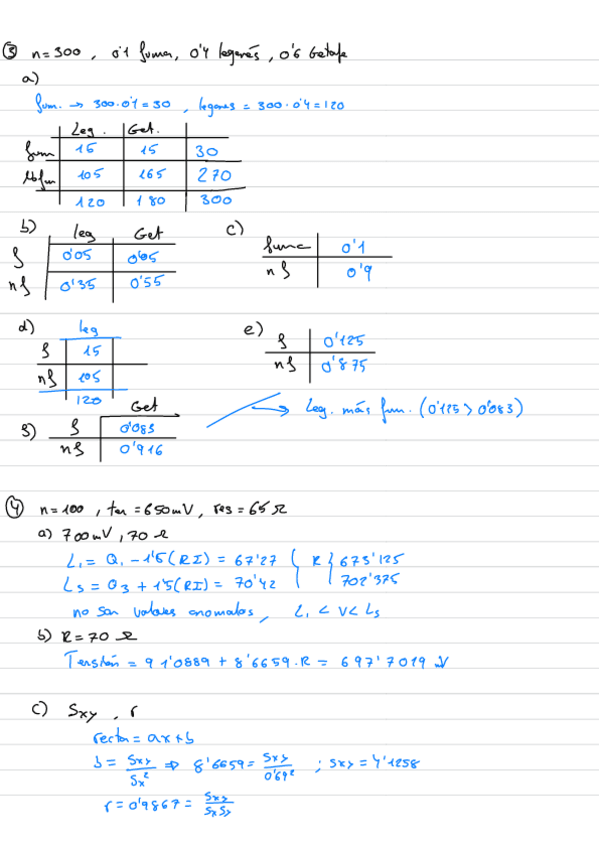 ③ n=300, 0'1 fuma, 0'4 leganés, 0'6 Getafe
a)
fum. → 300·0'1=30, leganes = 300·0'4=120
Leg. Get.
fum 15 15 30
105 165 270
120 180 300
b) leg Get c)
f 0'05 0'05 fuma 0'1
nf 0'35 0'55 nf 0'9
d) leg e)
f 15 f 0'125
nf 105 nf 0'875
120
Get → Leg. más fum. (0'125 > 0'083)
f 0'083
nf 0'916
④ n=100, ten = 650mV, res = 65 Ω
a) 700mV, 70 Ω
Li = Q1 - 1'5(RI) = 67'27 R 673'125
Ls = Q3 + 1'5(RI) = 70'42 702'375
no son valores anomalos, Li < V < Ls
b) R = 70 Ω
Tensión = 91'0889 + 8'6659·R = 697'7019 V
c) Sxy, r
recta = ax+b
b = Sxy/Sx² ⇒ 8'6659 = Sxy/0'69² ; Sxy = 4'1258
r = 0'9867 = Sxy/SxSy